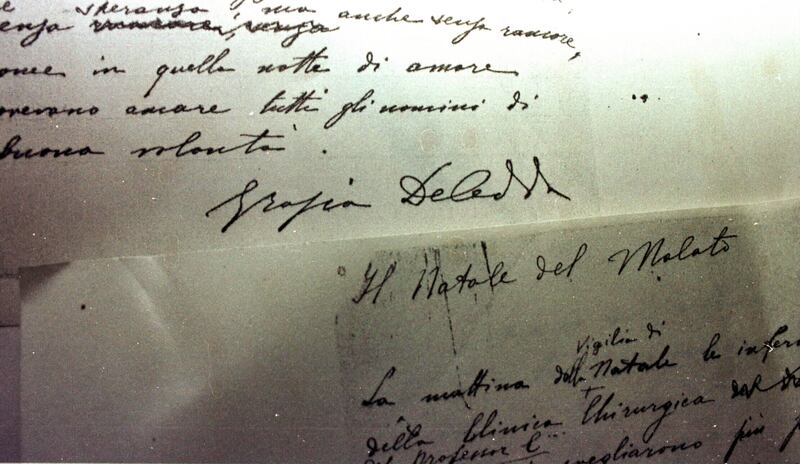 e speranza, ma anche senza rancore,
enza
ome in quella notte di amore
ovevano amare tutti gli uomini di
buona volontà.
Grazia Deledda
Il Natale del Malato
vigilia di
La mattina della Natale le infer
della Clinica Chirurgica del
del Professor C...
vegliarono più p